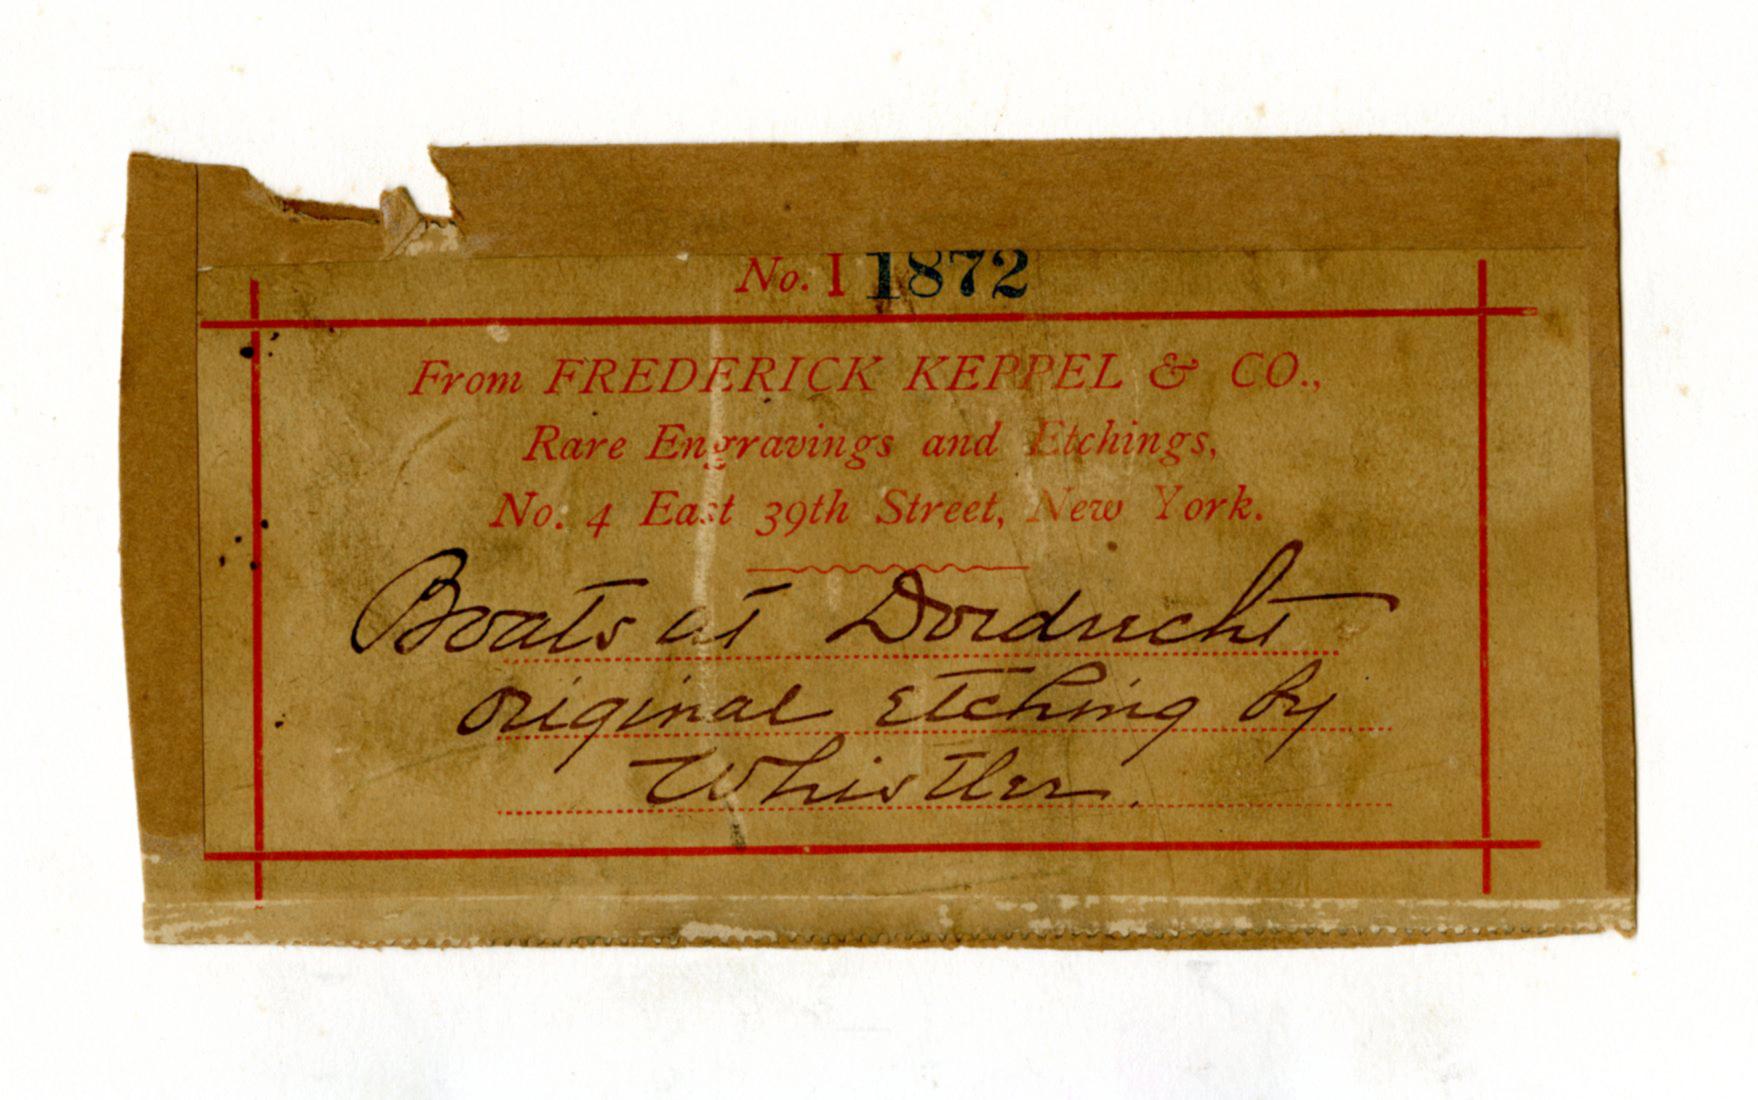 No. I 1872
From FREDERICK KEPPEL & CO.,
Rare Engravings and Etchings,
No. 4 East 39th Street, New York.
Boats at Dordrecht
original etching by
Whistler.